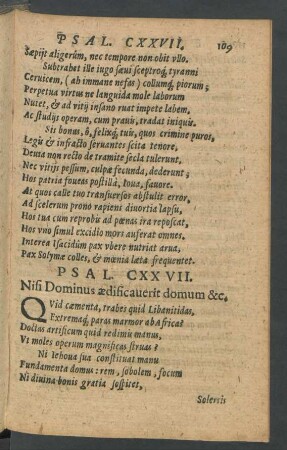 PSAL. CXXVII. 109
Sæpijt aligerûm, nec tempore non obit vllo.
Subtrahet ille iugo sæui sceptroq́, tyranni
Ceruicem, (ab immane nefas) collumq́, piorum;
Perpetua virtus ne languida mole laborum
Nutet, & ad vitij insano ruat impete labem.
Ac studijs operam, cum prauis, tradat iniquis.
Sis bonus, ô, felixq́, tuis, quos crimine puros,
Legis & infracto seruantes scita tenore,
Deuia non recto de tramite secla tulerunt,
Nec vitijs pessum, culpæ fecunda, dederunt;
Hos patria foueas postillâ, Ioua, fauore.
At quos calle tuo transuersos abstulit error,
Ad scelerum prono rapiens diuortia lapsu,
Hos tua cum reprobis ad pœnas ira reposcat,
Hos vno simul excidio mors auferat omnes.
Interea Isacidûm pax vbere nutriat arua,
Pax Solymæ colles, & mœnia læta frequentet.
PSAL. CXXVII.
Nisi Dominus ædificauerit domum &c.
QVid cæmenta, trabes quid Libanitidas,
Extremaq́, paras marmor ab Africa?
Doctas artificum quid redimis manus,
Vt moles operum magnificas struas?
Ni Iehoua sua constituat manu
Fundamenta domus: rem, sobolem, focum
Ni diuina bonis gratia sospitet,
Solertis